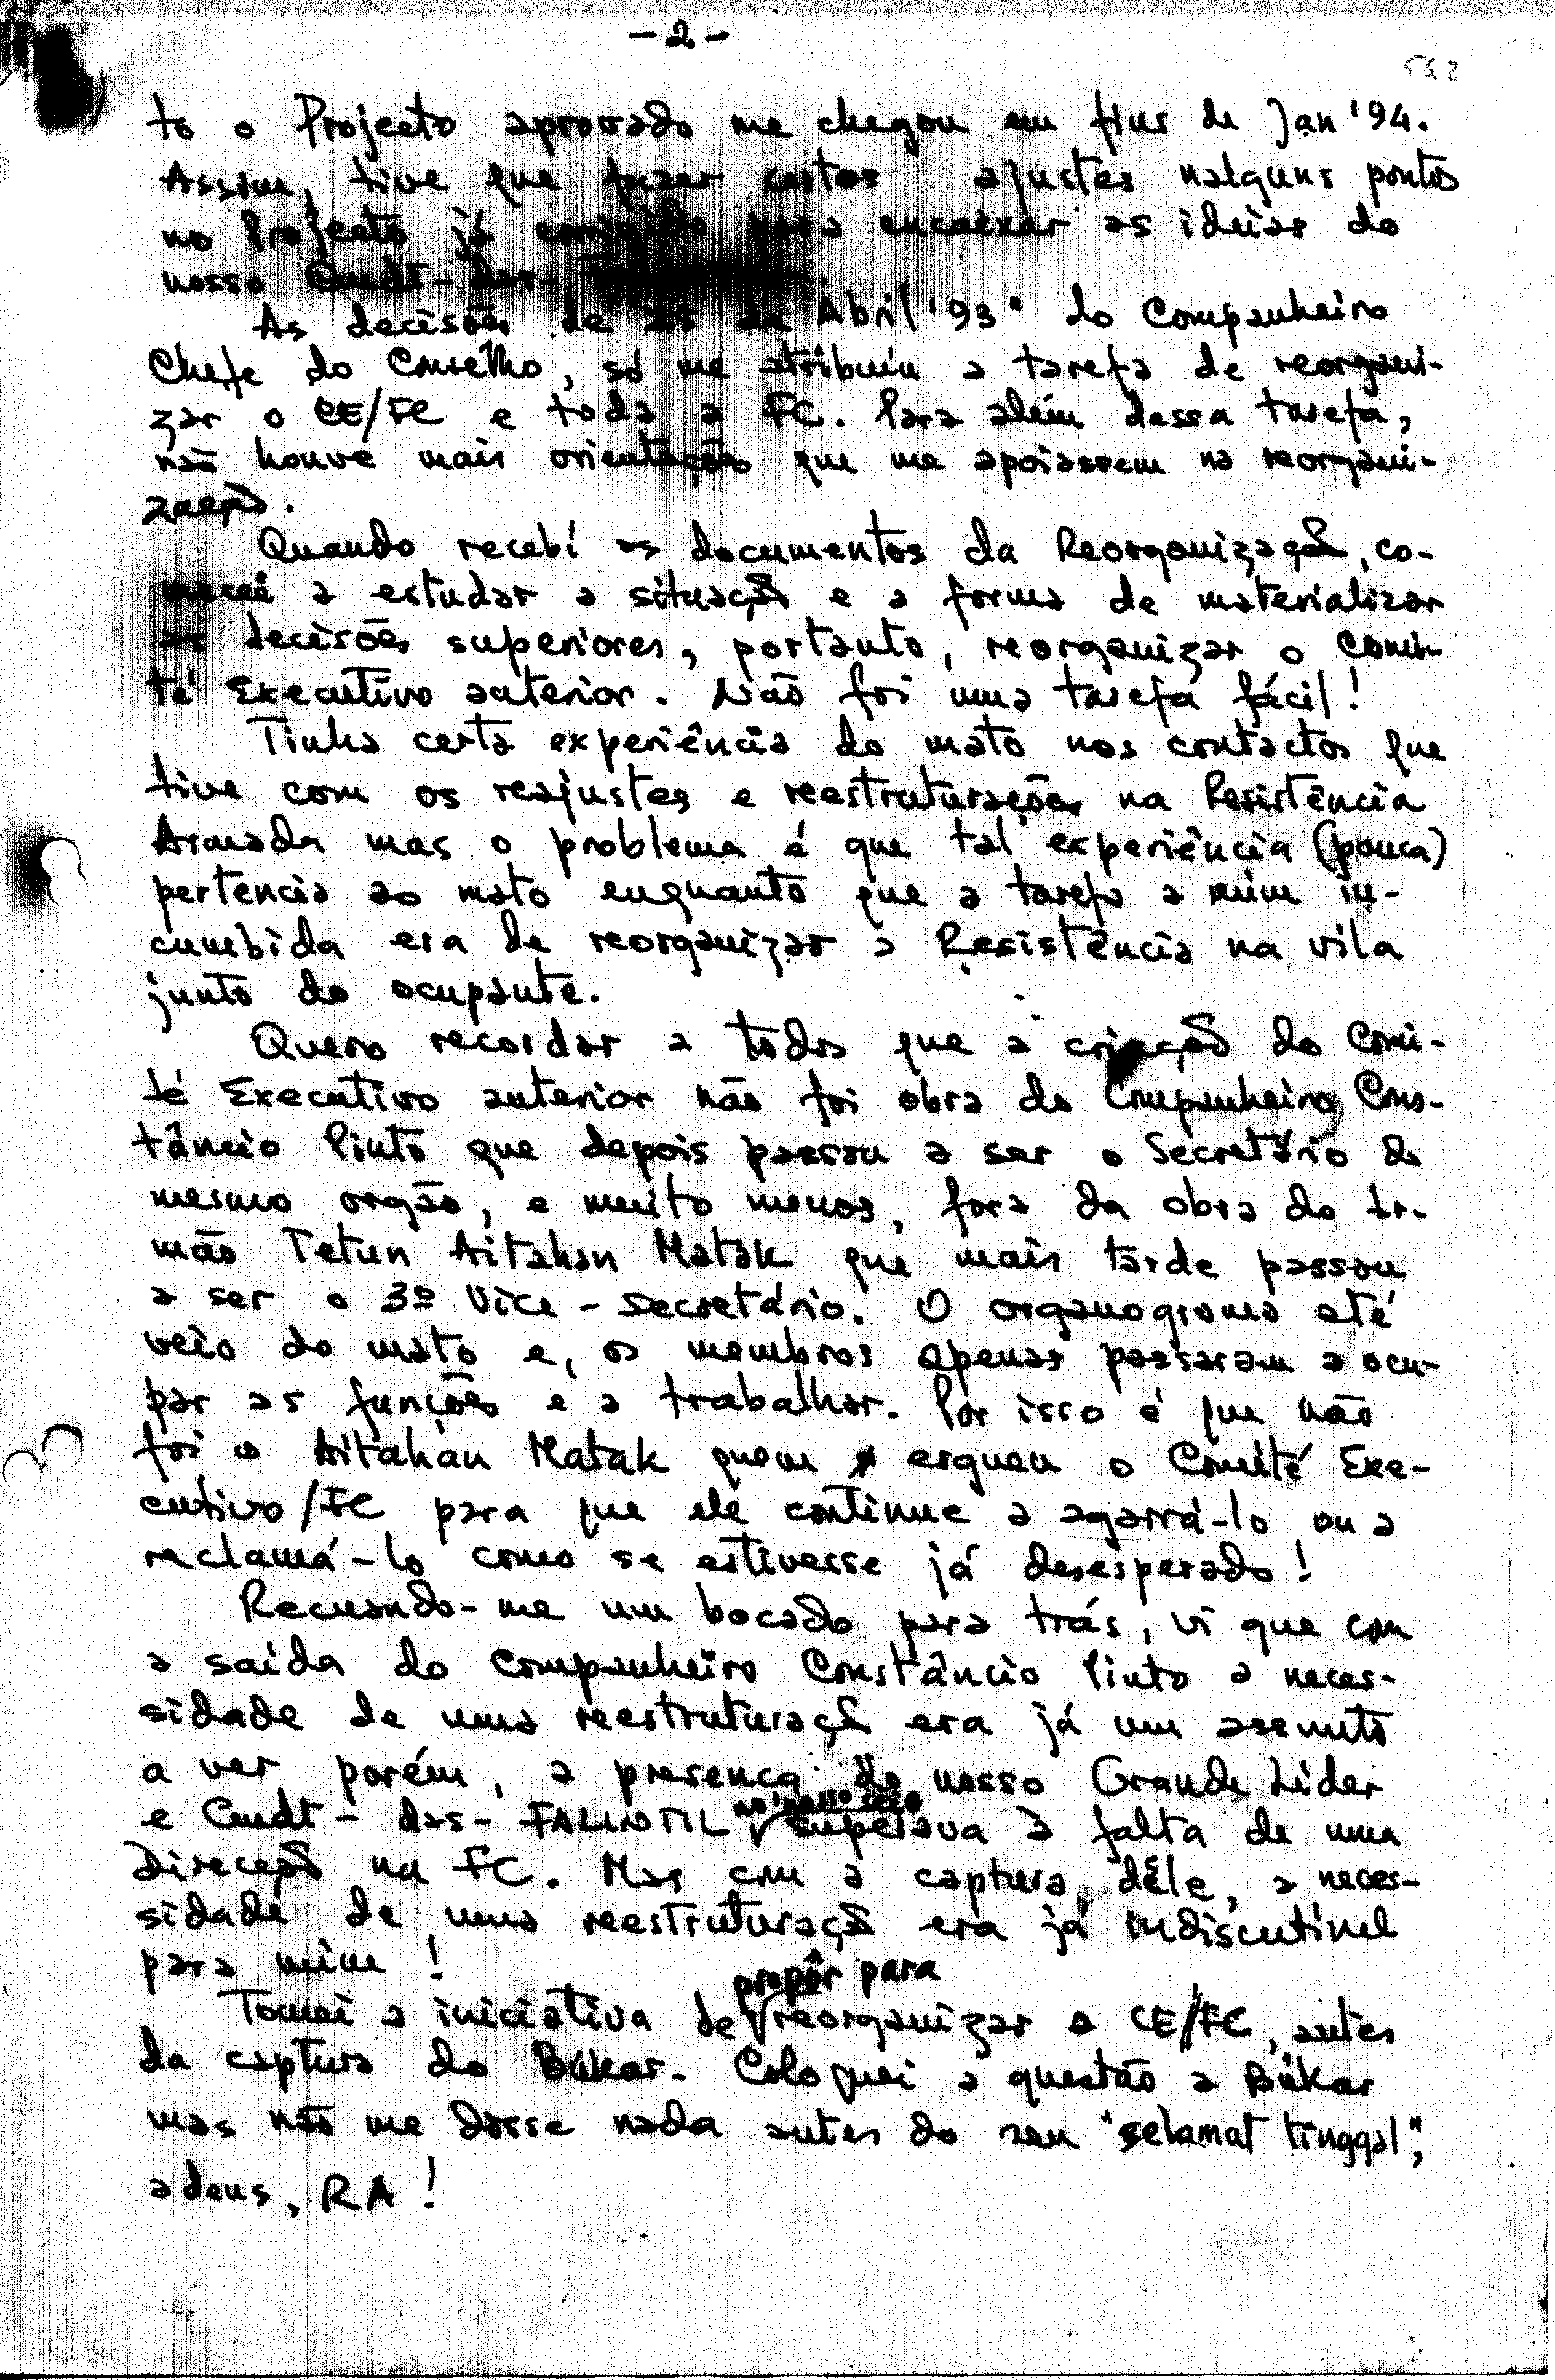 - 2 -
to o Projecto aprovado me chegou em fins de Jan '94.
Assim, tive que fazer certos ajustes nalguns pontos
no Projecto já corrigido para encaixar as ideias do
nosso Cmdt-das-
As decisões de 25 de Abril '93" do Companheiro
Chefe do Conselho, só me atribuíu a tarefa de reorgani-
zar o CE/FC e toda a FC. Para além dessa tarefa,
não houve mais orientações que me apoiassem na reorgani-
zação.
Quando recebí os documentos da Reorganização, co-
mecei a estudar a situação e a forma de materializar
as decisões superiores, portanto, reorganizar o Comi-
té Executivo anterior. Não foi uma tarefa fácil!
Tinha certa experiência do mato nos contactos que
tive com os reajustes e reestruturações na Resistência
Armada mas o problema é que tal experiência (pouca)
pertencia ao mato enquanto que a tarefa a mim in-
cumbida era de reorganizar a Resistência na vila
junto do ocupante.
Quero recordar a todos que a criação do Comi-
té Executivo anterior não foi obra do Companheiro Cons-
tâncio Pinto que depois passou a ser o Secretário do
mesmo orgão, e muito menos, fora da obra do Ir-
mão Tetun Aitahan Matak que mais tarde passou
a ser o 3º Vice-Secretário. O organograma até
veio do mato e, os membros apenas passaram a ocu-
par as funções e a trabalhar. Por isso é que não
foi o Aitahan Matak quem ergueu o Comité Exe-
cutivo/FC para que ele continue a agarrá-lo ou a
reclamá-lo como se estivesse já desesperado!
Recuando-me um bocado para trás, vi que com
a saída do Companheiro Constâncio Pinto a neces-
sidade de uma reestruturação era já um assunto
a ver porém, a presença do nosso Grande Líder
e Cmdt-das-FALINTIL no nosso seio superava à falta de uma
Direcção na FC. Mas com a captura dêle, a neces-
sidade de uma reestruturação era já indiscutível
para mim!
Tomei a iniciativa de propôr para reorganizar o CE/FC, antes
da captura do Búkar. Coloquei a questão a Búkar
mas não me disse nada antes do seu "selamat tinggal",
adeus, RA!